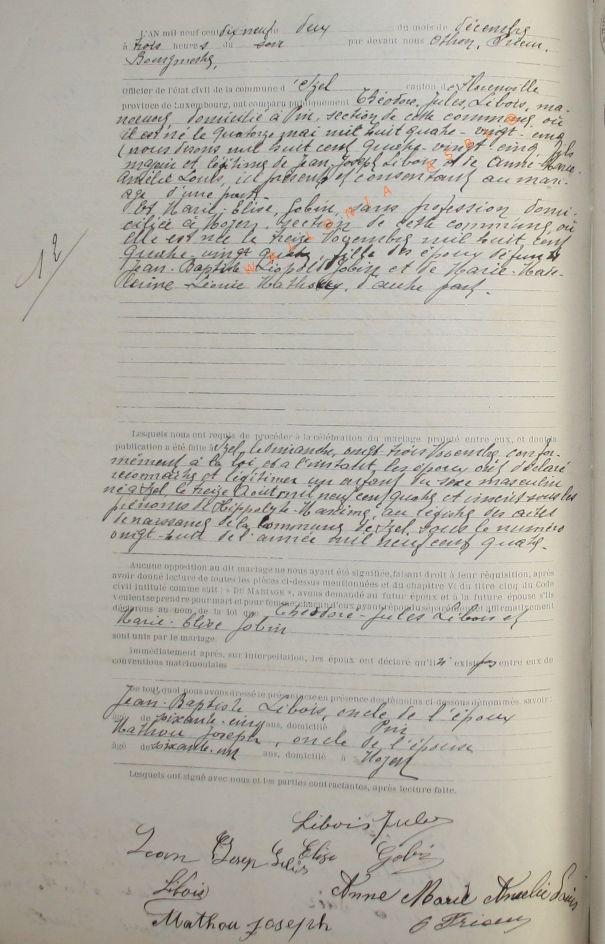 L'AN mil neuf cent dix neuf, le deux du mois de décembre
à trois heures du soir par devant nous Othon,
Bourgmestre,
Officier de l'état civil de la commune d'Izel canton de Florenville
province de Luxembourg, ont comparu publiquement Théodore, Jules, Libois, ma-
nœuvre, domicilié à Pin, section de cette commune, où
il est né le quatorze mai mil huit cent quatre-vingt-cinq
(nous disons mil huit cent quatre-vingt-cinq) fils
majeur et légitime de Jean-Joseph Libois et de Anne Marie
Amélie Louis, ici présents et consentant au mari-
age d'une part.
Et, Marie-Elise, Jobin, sans profession domi-
ciliée à Moyen, section de cette commune, où
elle est née le treize Novembre mil huit cent
quatre-vingt fille des époux défunts
Jean-Baptiste Léopold Jobin et de Marie-Kate-
rine Léonie Mathoux, d'autre part.
12
Lesquels nous ont requis de procéder à la célébration du mariage projeté entre eux, et dont la
publication a été faite à Izel, le dimanche, vingt trois Novembre confor-
mément à la loi et à l'instant, les époux ont déclaré
reconnaître et légitimer un enfant du sexe masculin
né à Izel, le treize Août mil neuf cent quatre et inscrit sous les
prénoms de Hippolyte-Maxime, au registre des actes
de naissance de la commune d'Izel, sous le numéro
vingt-huit de l'année mil neuf cent quatre.
Aucune opposition au dit mariage ne nous ayant été signifiée, faisant droit à leur réquisition, après
avoir donné lecture de toutes les pièces ci-dessus mentionnées et du chapitre VI du titre cinq du Code
civil intitulé comme suit : « DU MARIAGE », avons demandé au futur époux et à la future épouse s'ils
veulent se prendre pour mari et pour femme; chacun d'eux ayant répondu séparément et affirmativement
déclarons au nom de la loi que Théodore-Jules Libois et
Marie-Elise Jobin
sont unis par le mariage.
Immédiatement après, sur interpellation, les époux ont déclaré qu'il n'existe pas entre eux de
conventions matrimoniales
De tout quoi nous avons dressé le présent acte en présence des témoins ci-dessous dénommés, savoir :
Jean-Baptiste Libois, oncle de l'époux
âgé de soixante-cinq ans, domicilié à Pin
Mathou Joseph, oncle de l'épouse
âgé de soixante-un ans, domicilié à Moyen
Lesquels ont signé avec nous et les parties contractantes, après lecture faite.
Libois Jules
Jean Elise Gobin
Libois Anne Marie Amelie Louis
Mathou Joseph